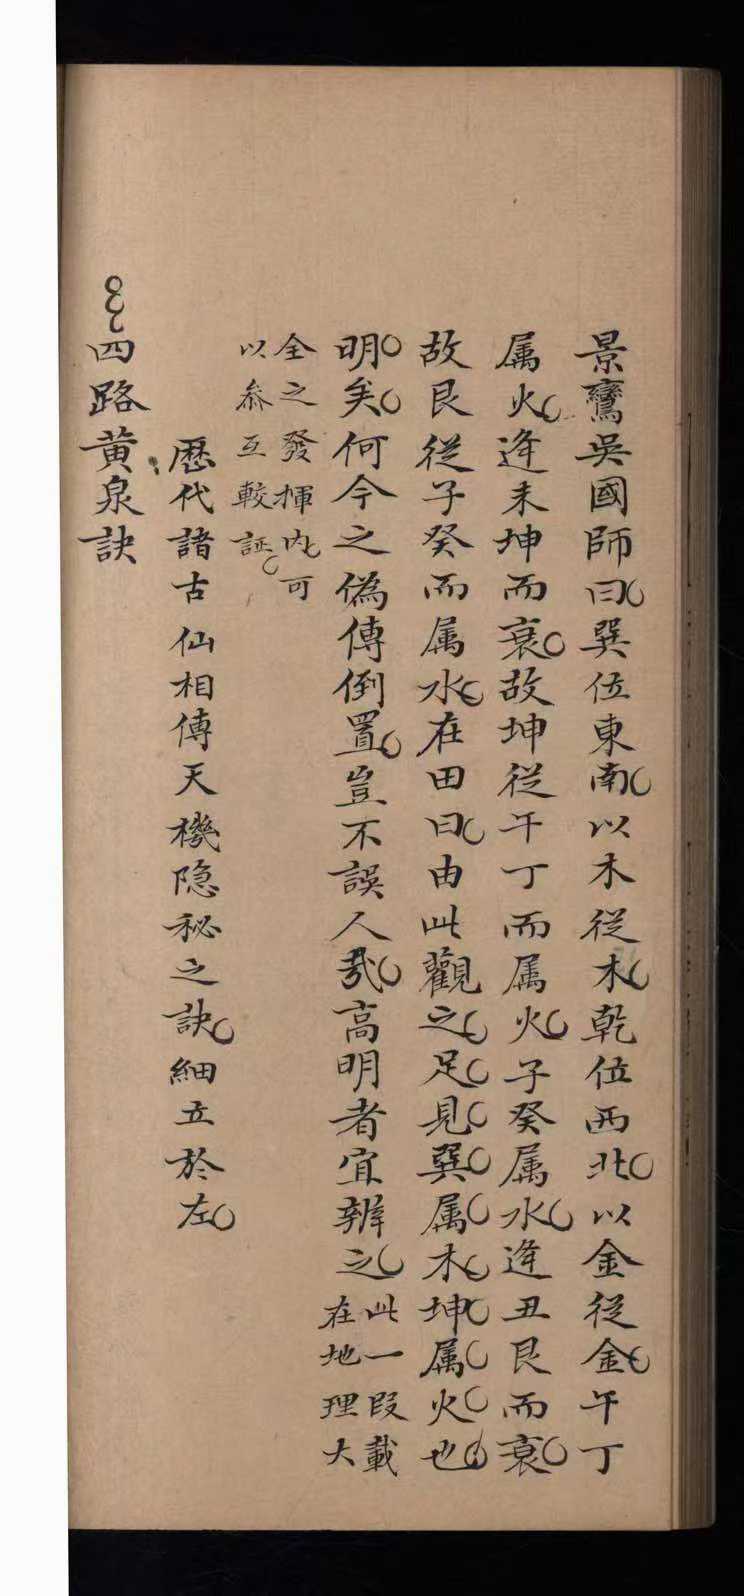 景鸞吳國師曰巽位東南以木從木乾位西北以金從金午丁
属火逢未坤而衰故坤從午丁而属火子癸属水逢丑艮而衰
故艮從子癸而属水在田曰由此觀之足見巽属木坤属火也
明矣何今之偽傳倒置豈不誤人哉高明者宜辨之
此一段載
在地理大
全之發揮內可
以叅互較証
歷代諸古仙相傳天機隐秘之訣細立於左
四路黄泉訣